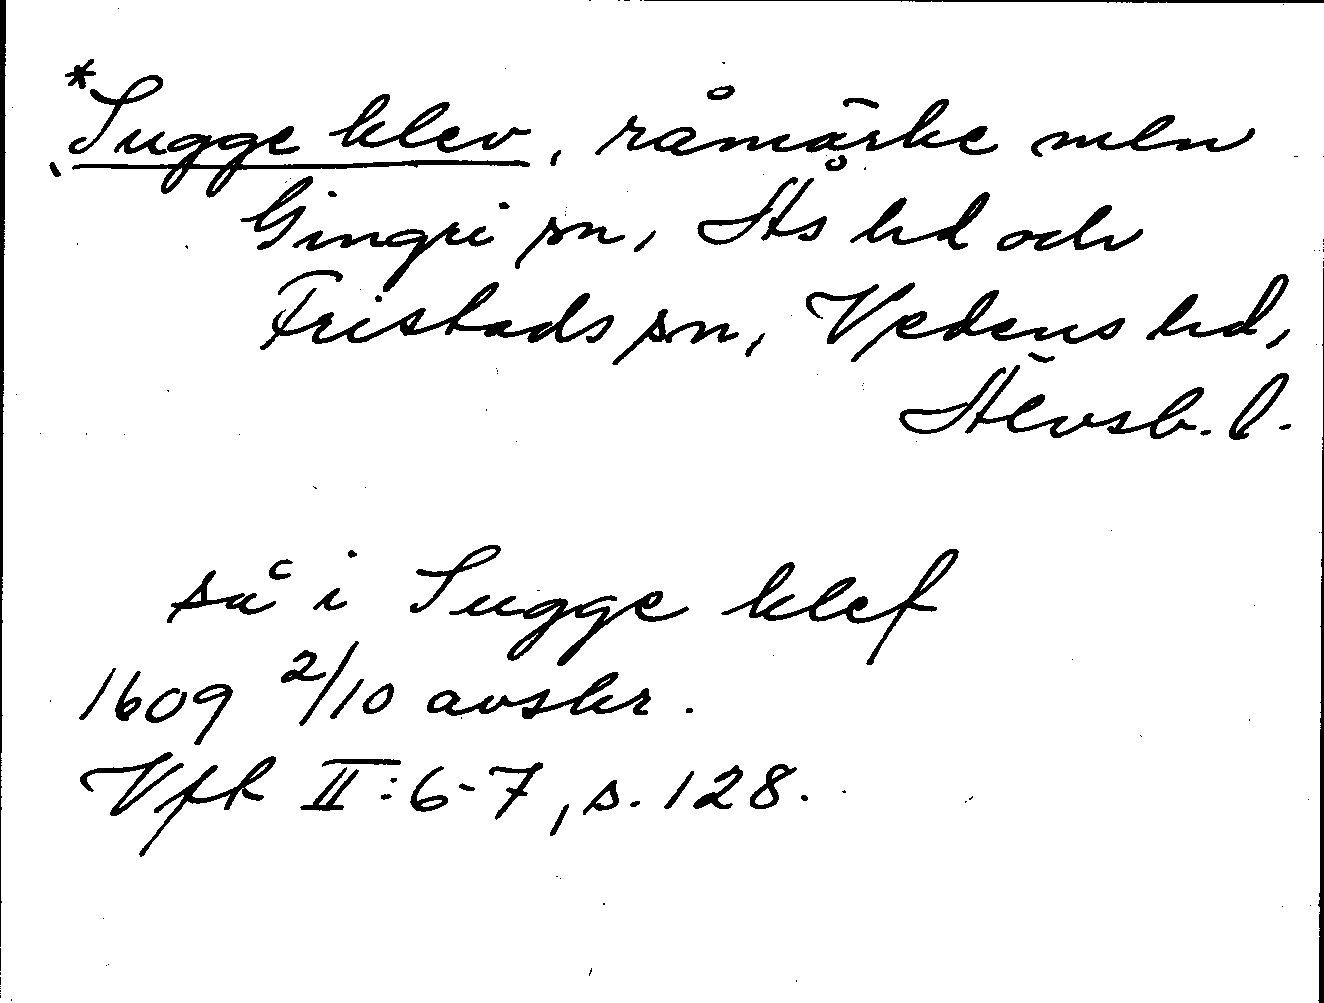 *Sugge klev, råmärke mln
Gingri sn, Ås hd och
Fristads sn, Vedens hd,
Älvsb. l.
så i Sugge klef
1609 2/10 avskr.
Vfk II:6-7, s. 128.